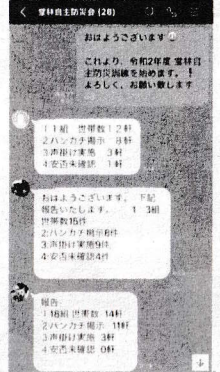 霊林自主防災会 (28)
おはようございます
これより、令和2年度 霊林自
主防災訓練を始めます。
よろしく、お願い致します
1 1組 世帯数12軒
2 ハンカチ掲示 8軒
3 声掛け実施 3軒
4 安否未確認 1軒
おはようございます。 下記
報告いたします。 1 3組
世帯数15件
2:ハンカチ掲示8件
3:声掛け実施9件
4:安否未確認4件
報告
1 18組 世帯数 14軒
2 ハンカチ掲示 11軒
3 声掛け実施 3軒
4 安否未確認 0軒